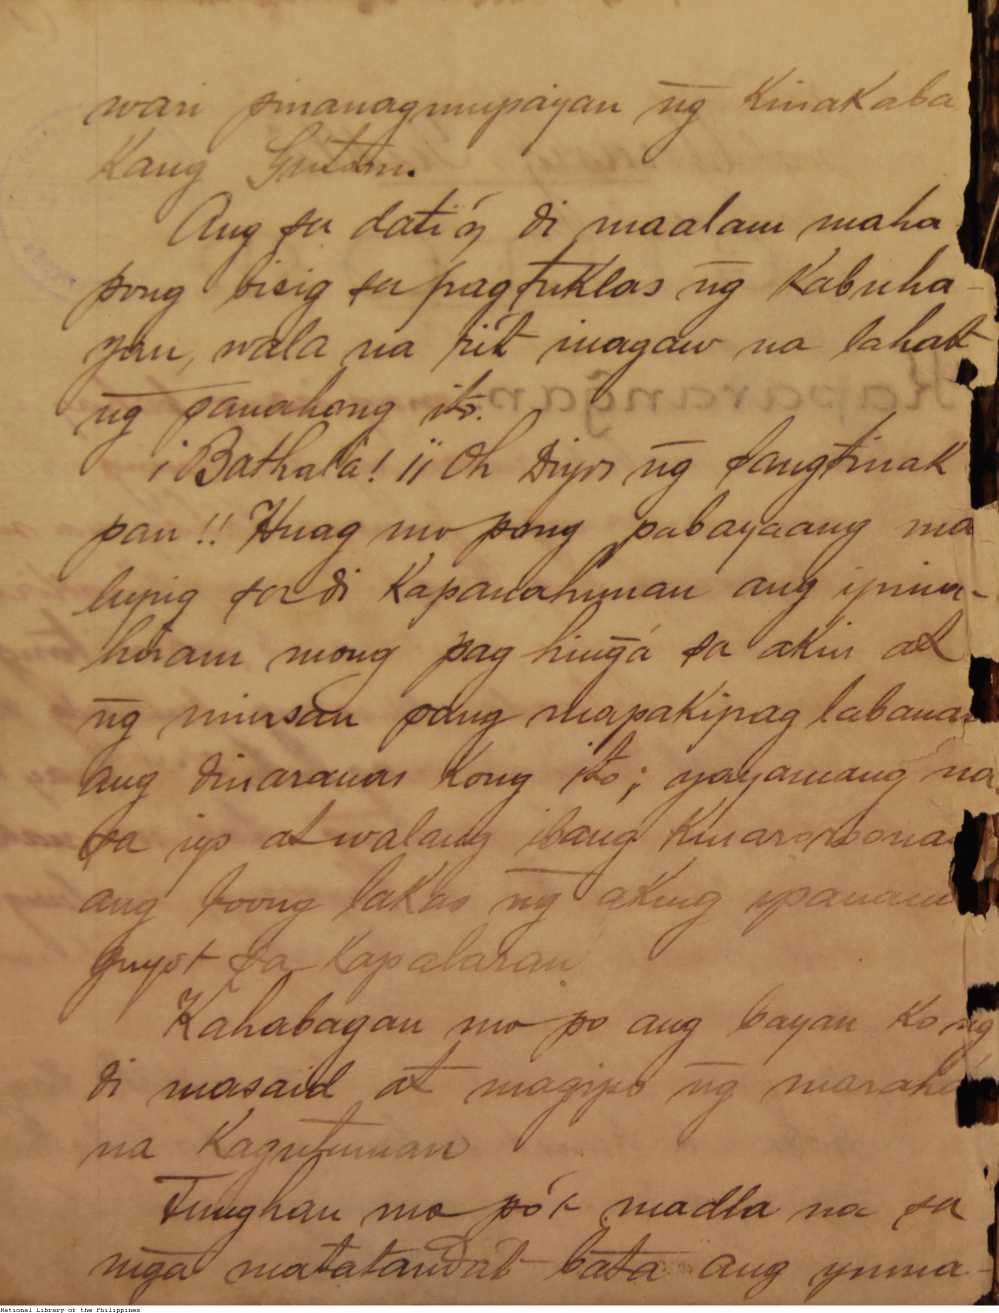 wari pinanagmupayan n̄g KinaKaba
Kang Gutom.
Ang sa dati'y di maalam maha
pong bisig sa pagtuKlas n̄g Kabuha-
yan, wala na rit inagaw na lahat
n̄g panahong ito.
¡Bathala! ¡¡Oh Diyos n̄g SangtinaK
pan!! Huag mo pong pabayaang ma
lupig sa di Kapanahunan ang ipina-
hiram mong pag hin̄gá sa akin at
n̄g minsan pang mapaKipag labanan
ang dinaranas Kong ito; yayamang na
sa iyo at walang ibang Kinaroroonan
ang boong laKas n̄g aKing
sa Kapalaran
Kahabagan mo po ang bayan Ko n̄g
di masaid at magipo n̄g marahás
na Kagutuman
Tunghan mo pó't madla na sa
mḡa matatanda't bata ang
Kaparan̄gan
National Library of the Philippines